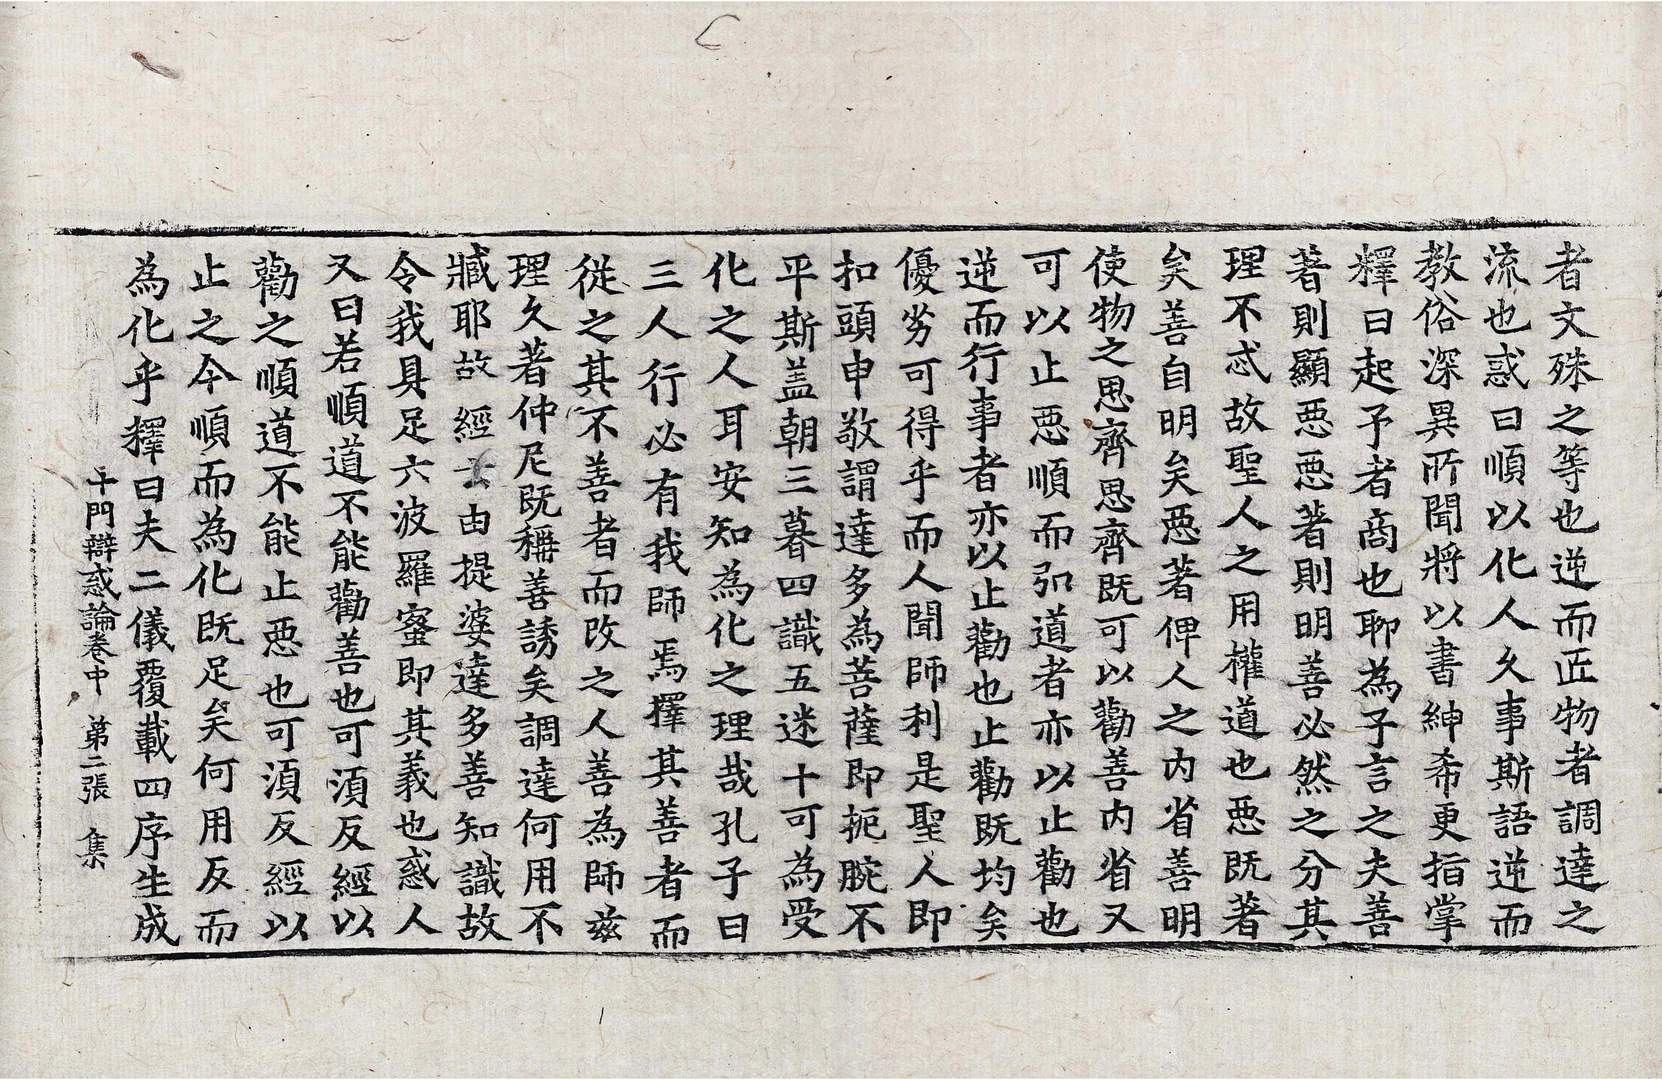 者文殊之等也逆而匠物者調達之
流也惑曰順以化人久事斯語逆而
教俗深異所聞將以書紳希更指掌
釋曰起予者商也聊為子言之夫善
著則顯惡惡著則明善必然之分其
理不忒故聖人之用權道也惡既著
矣善自明矣惡著俾人之內省善明
使物之思齊思齊既可以勸善內省又
可以止惡順而弘道者亦以止勸也
逆而行事者亦以止勸也止勸既均矣
優劣可得乎而人聞師利是聖人即
扣頭申敬謂達多為菩薩即扼腕不
平斯盖朝三暮四識五迷十可為受
化之人耳安知為化之理哉孔子曰
三人行必有我師焉擇其善者而
從之其不善者而改之人善為師兹
理久著仲尼既稱善誘矣調達何用不
臧耶故經云由提婆達多善知識故
令我具足六波羅蜜即其義也惑人
又曰若順道不能勸善也可湏反經以
勸之順道不能止惡也可湏反經以
止之今順而為化既足矣何用反而
為化乎釋曰夫二儀覆載四序生成
十門辯惑論卷中 第二張 集